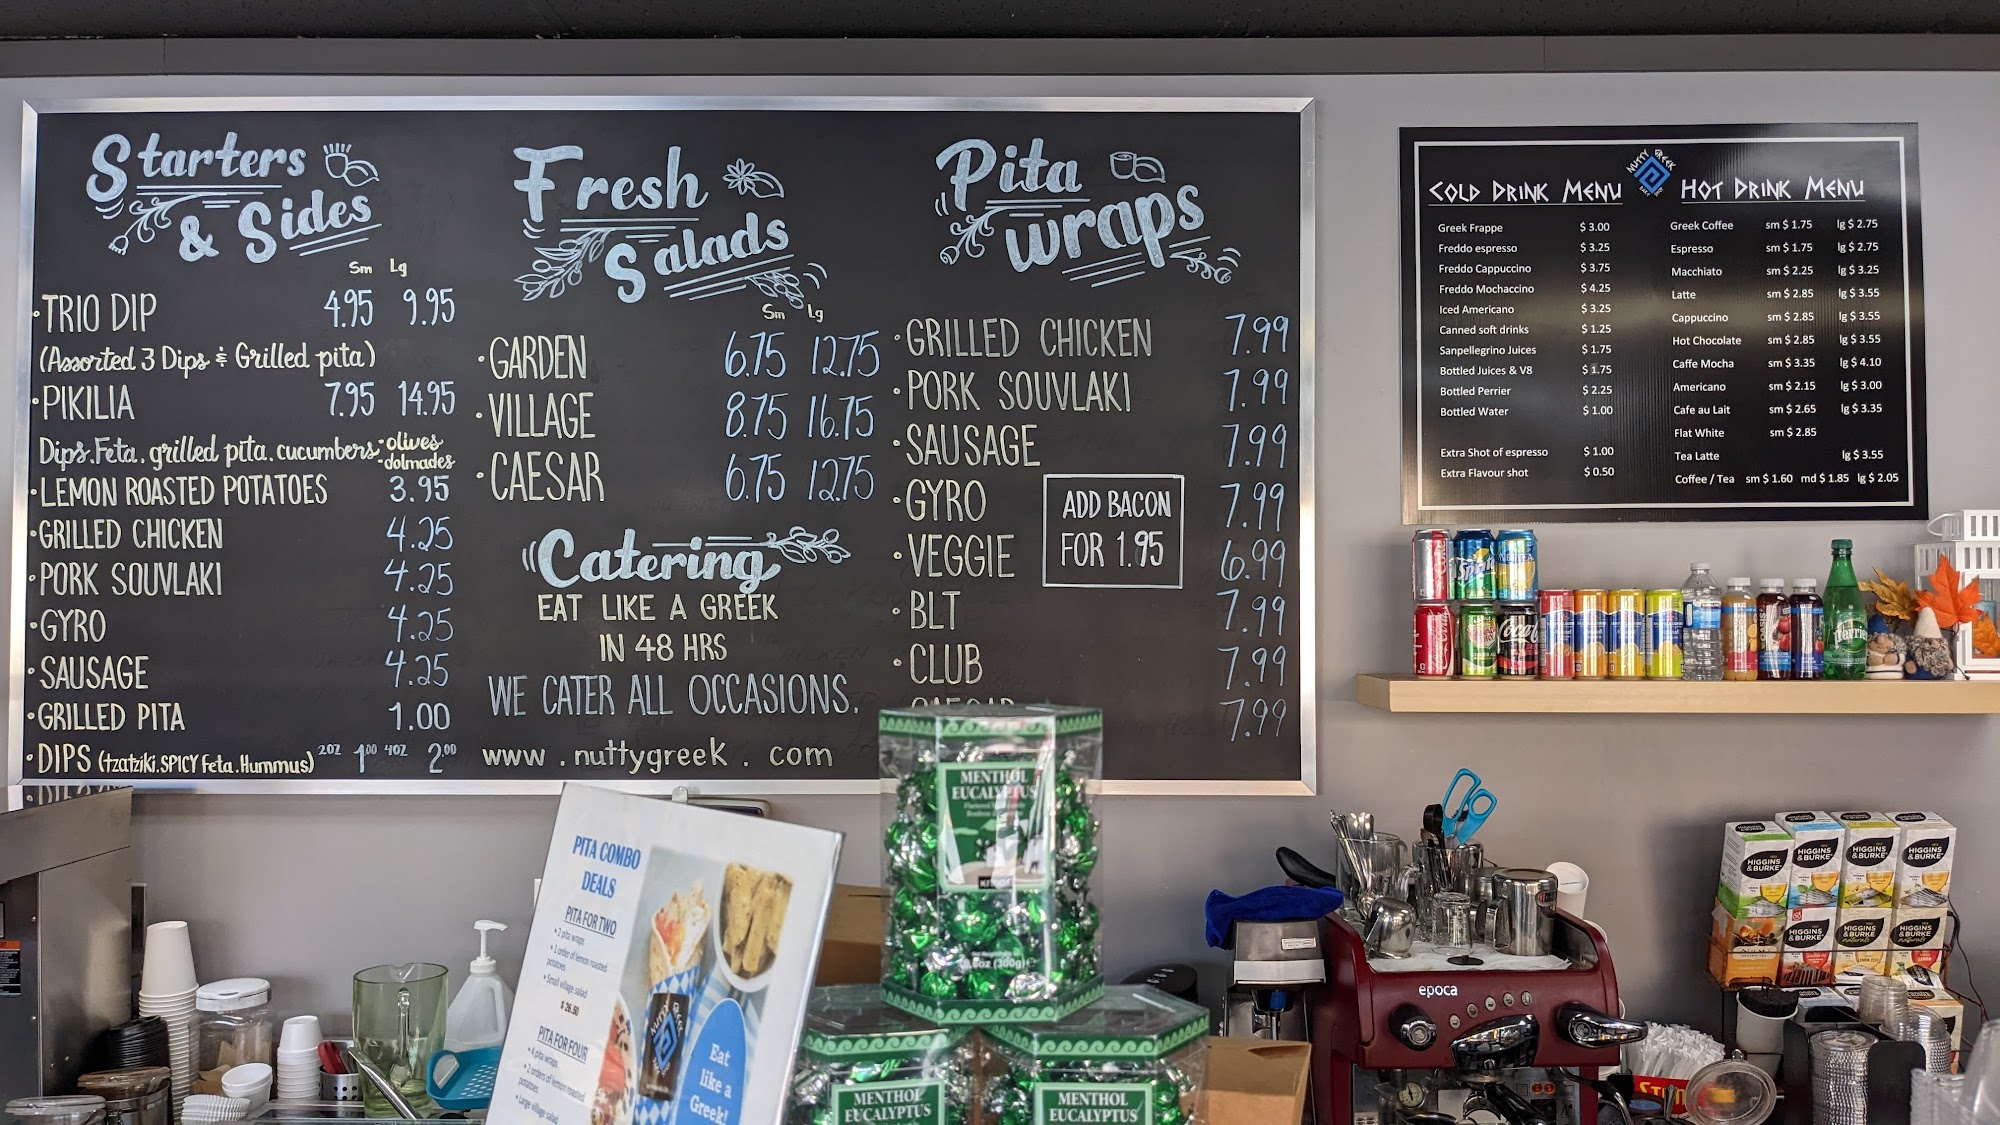 Starters
& Sides
Sm Lg
• TRIO DIP 4.95 9.95
(Assorted 3 Dips & Grilled pita)
• PIKILIA 7.95 14.95
Dips. Feta. grilled pita. cucumbers • olives
• dolmades
• LEMON ROASTED POTATOES 3.95
• GRILLED CHICKEN 4.25
• PORK SOUVLAKI 4.25
• GYRO 4.25
• SAUSAGE 4.25
• GRILLED PITA 1.00
• DIPS (tzatziki. SPICY feta. Hummus) 2oz 1.00 4oz 2.00
Fresh
Salads
Sm Lg
• GARDEN 6.75 12.75
• VILLAGE 8.75 16.75
• CAESAR 6.75 12.75
Catering
EAT LIKE A GREEK
IN 48 HRS
WE CATER ALL OCCASIONS.
www.nuttygreek.com
Pita
Wraps
• GRILLED CHICKEN 7.99
• PORK SOUVLAKI 7.99
• SAUSAGE 7.99
• GYRO 7.99
• VEGGIE 6.99
• BLT 7.99
• CLUB 7.99
CAESAR 7.99
ADD BACON
FOR 1.95
NUTTY GREEK
COLD DRINK MENU
Greek Frappe $ 3.00
Freddo espresso $ 3.25
Freddo Cappuccino $ 3.75
Freddo Mochaccino $ 4.25
Iced Americano $ 3.25
Canned soft drinks $ 1.25
Sanpellegrino Juices $ 1.75
Bottled Juices & V8 $ 1.75
Bottled Perrier $ 2.25
Bottled Water $ 1.00
Extra Shot of espresso $ 1.00
Extra Flavour shot $ 0.50
HOT DRINK MENU
Greek Coffee sm $ 1.75 lg $ 2.75
Espresso sm $ 1.75 lg $ 2.75
Macchiato sm $ 2.25 lg $ 3.25
Latte sm $ 2.85 lg $ 3.55
Cappuccino sm $ 2.85 lg $ 3.55
Hot Chocolate sm $ 2.85 lg $ 3.55
Caffe Mocha sm $ 3.35 lg $ 4.10
Americano sm $ 2.15 lg $ 3.00
Cafe au Lait sm $ 2.65 lg $ 3.35
Flat White sm $ 2.85
Tea Latte lg $ 3.55
Coffee / Tea sm $ 1.60 md $ 1.85 lg $ 2.05
Perrier
PITA COMBO
DEALS
PITA FOR TWO
• 2 pita wraps
• 1 order of lemon roasted
potatoes
• Small village salad
$ 26.50
PITA FOR FOUR
• 4 pita wraps
• 2 orders of lemon roasted
potatoes
• Large village salad
NUTTY GREEK
Eat
like a
Greek!
MENTHOL
EUCALYPTUS
MENTHOL
EUCALYPTUS
MENTHOL
EUCALYPTUS
epoca
HIGGINS
& BURKE
HIGGINS
& BURKE
HIGGINS
& BURKE
HIGGINS
& BURKE
HIGGINS
& BURKE
HIGGINS
& BURKE
naturals
HIGGINS
& BURKE
naturals